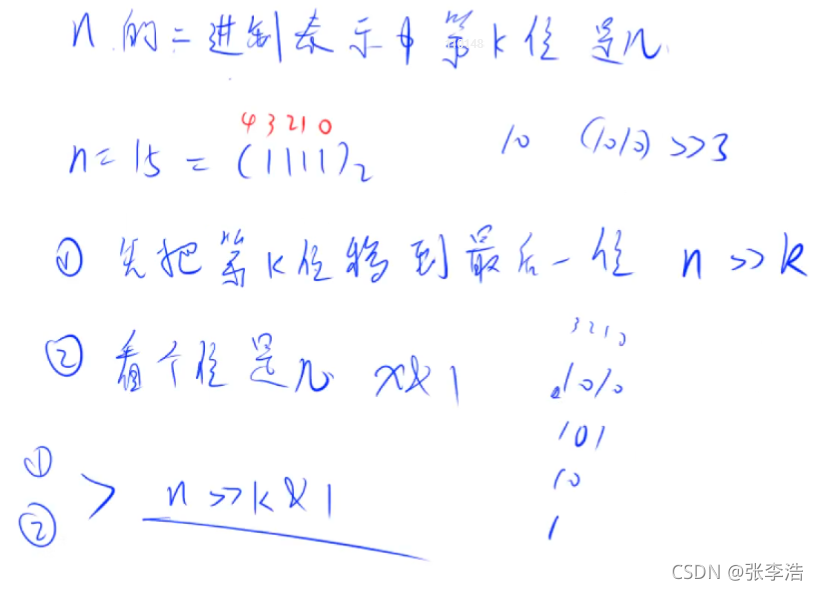 n的二进制表示中第k位是几
4 3 2 1 0
n = 15 = (1111)₂
10 (1010) >> 3
① 先把第k位移到最后一位 n >> k
② 看个位是几 x & 1
3 2 1 0
1010
101
10
1
①
② > n >> k & 1
CSDN @张李浩